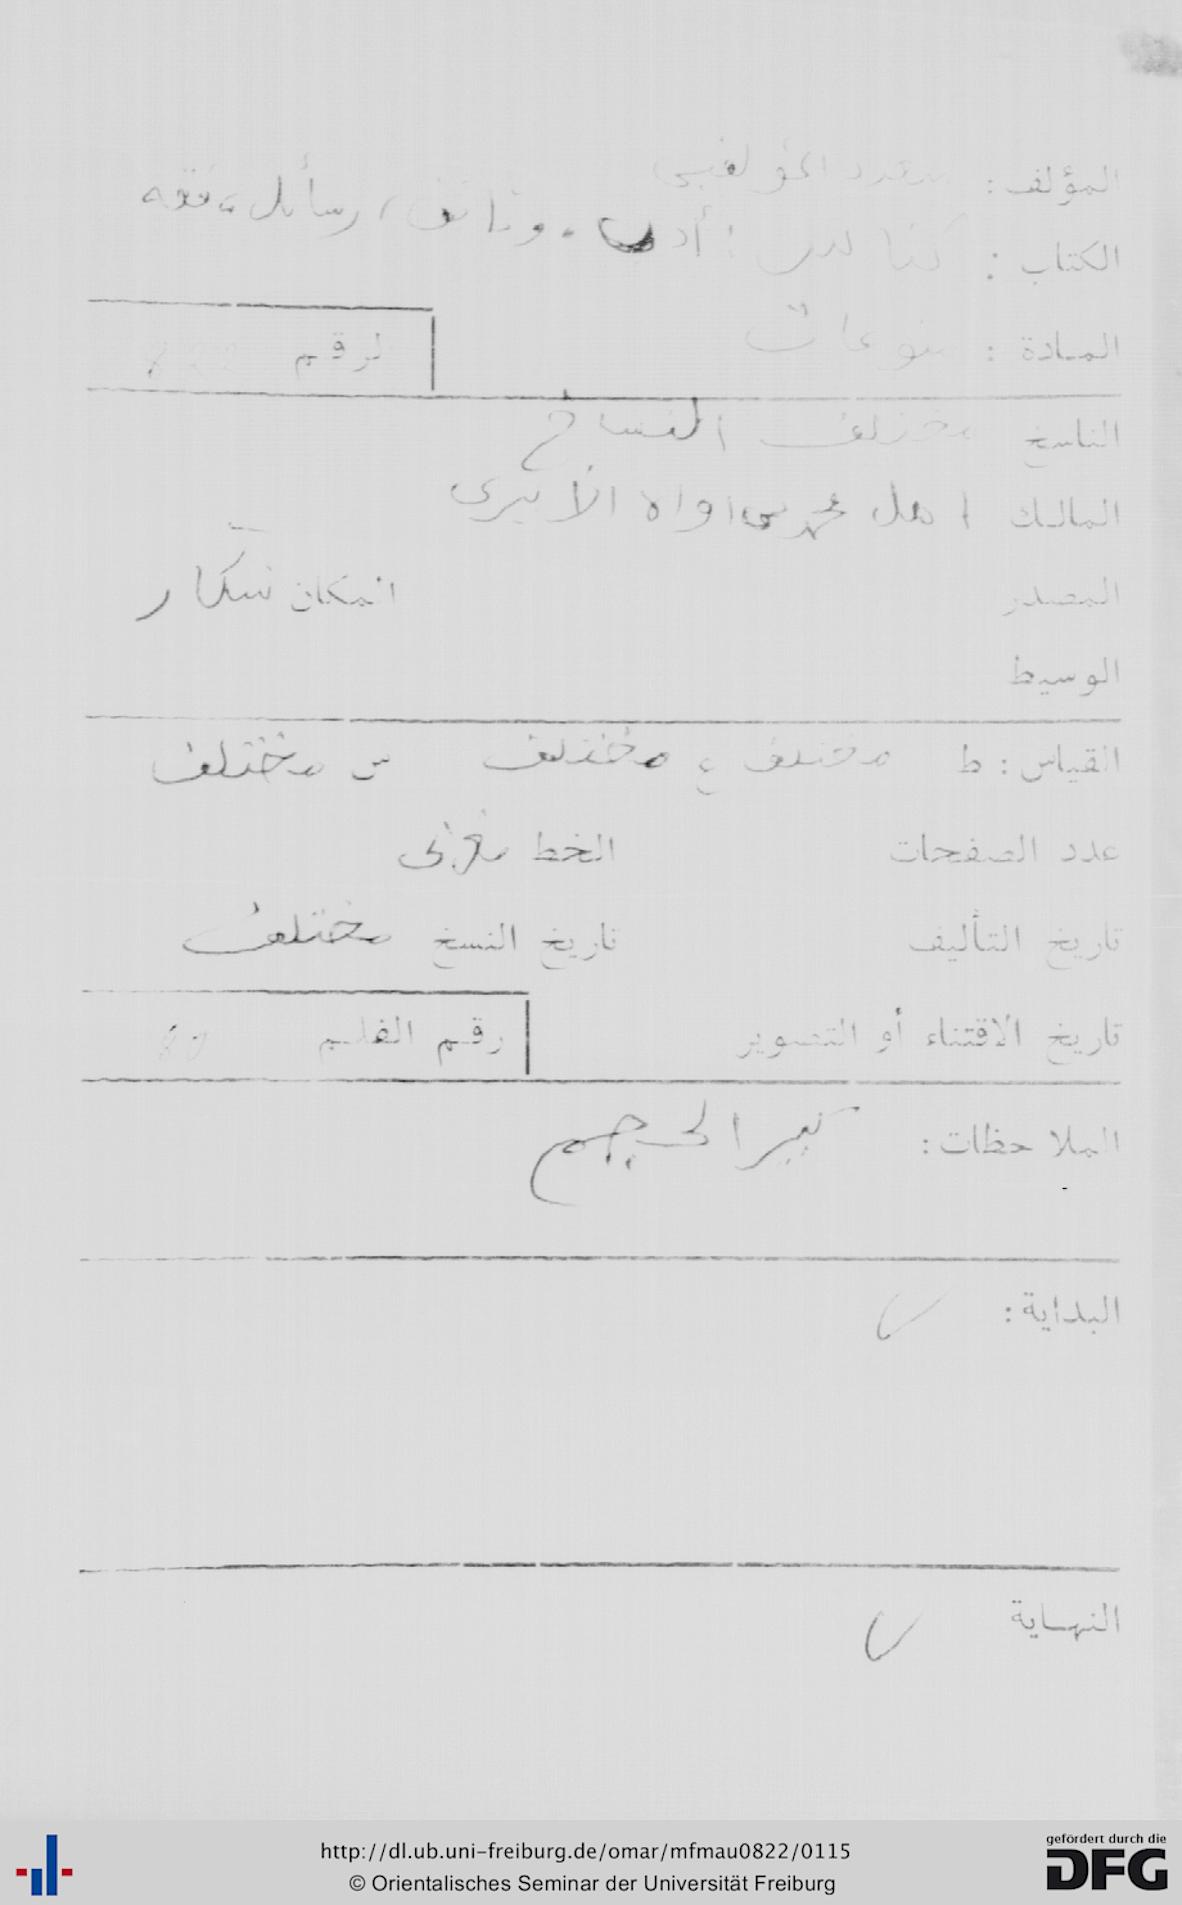 المؤلف : متعدد المؤلفين
الكتاب : كناش : أدب . وثائق ، رسائل ، فقه
المادة : منوعات
الرقم
الناسخ مختلف النساخ
المالك اهل محمد
المصدر المكان
الوسيط
القياس : ط مختلف ع مختلف س مختلف
عدد الصفحات الخط مغربي
تاريخ التأليف تاريخ النسخ مختلف
تاريخ الاقتناء أو التصوير رقم الفلم
الملاحظات : كبير الحجم
البداية :
النهاية
http://dl.ub.uni-freiburg.de/omar/mfmau0822/0115
© Orientalisches Seminar der Universität Freiburg
gefördert durch die
DFG